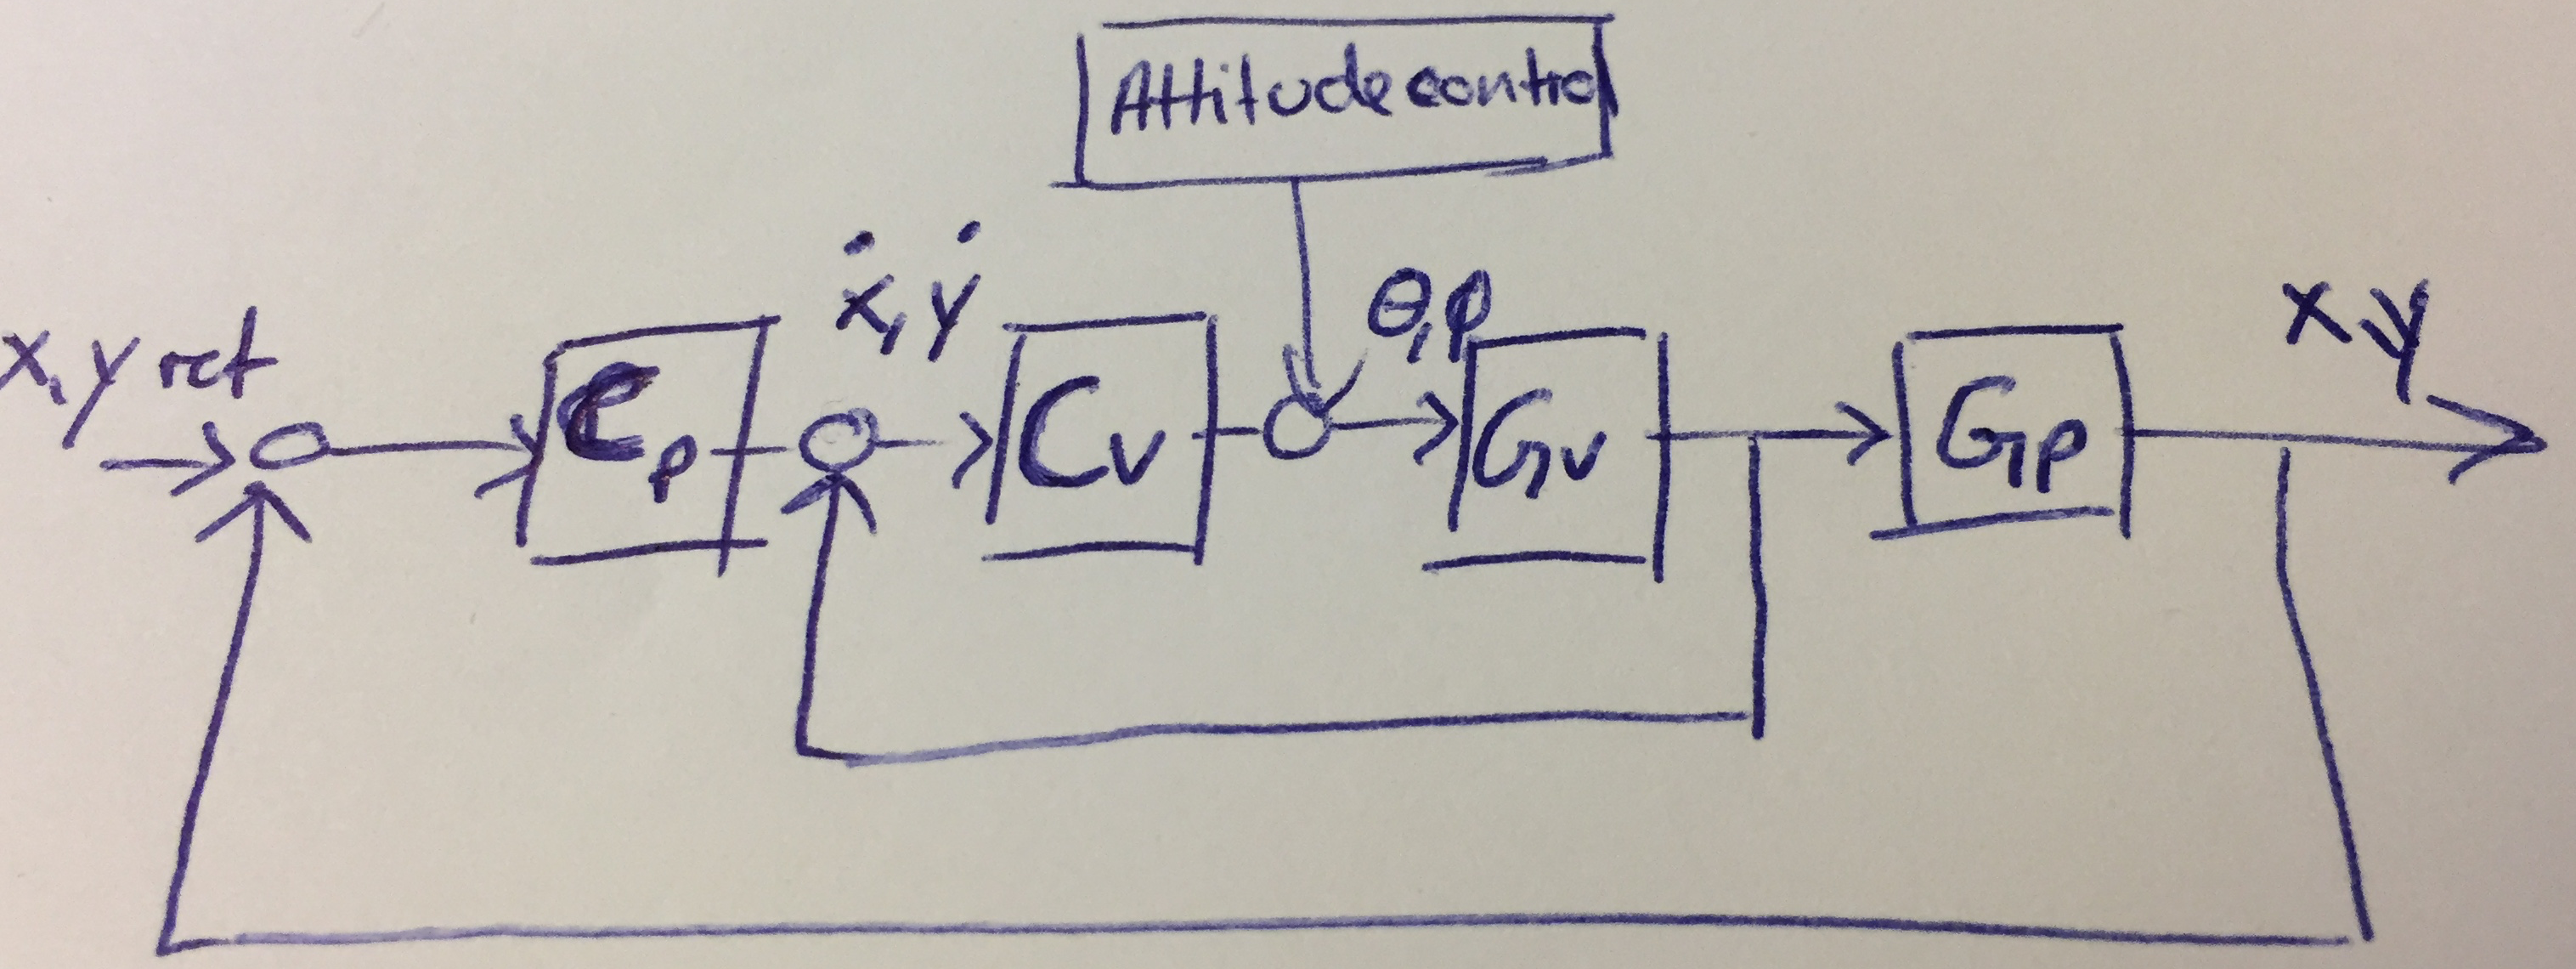 Attitude control
x, y ref
Cp
ẋ, ẏ
Cv
θ, φ
Gv
Gp
x, y